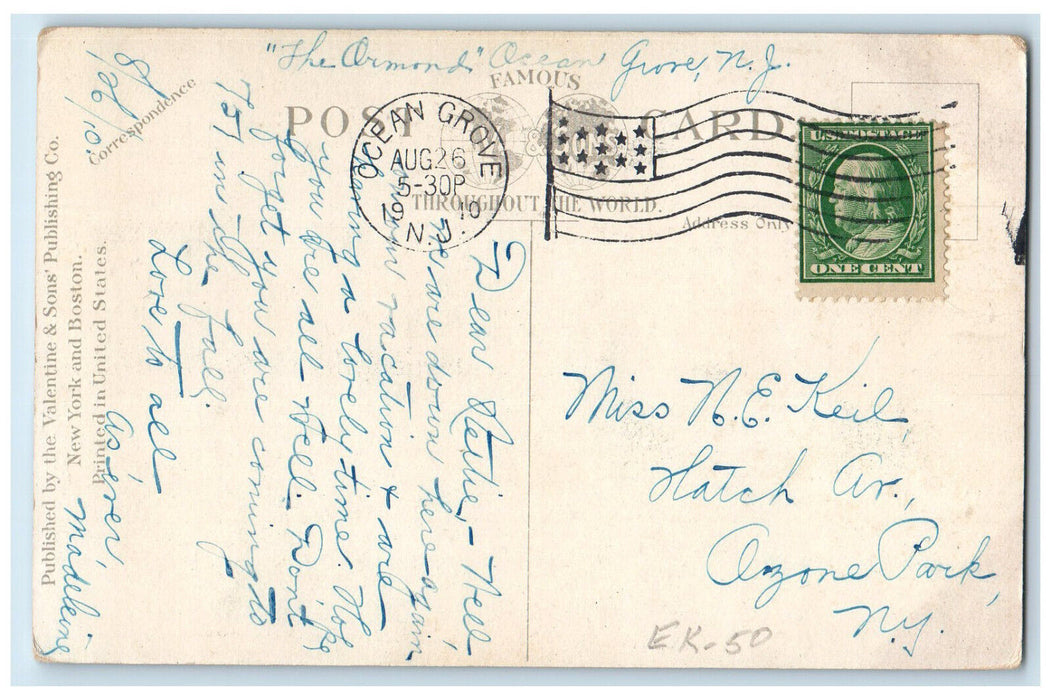 "The Ormond" Ocean Grove, N.J.
8/26/10.
FAMOUS
POST CARD
THROUGHOUT THE WORLD.
Correspondence
Address Only
OCEAN GROVE
AUG 26
5-30P
1910
N.J.
U.S. POSTAGE
ONE CENT
Dear Nettie,- Well,
we are down here again
on our vacation & are
having a lovely time. Hope
you are all well. Don't
forget you are coming to
in the fall.
Love to all
As ever,
Madeleine
Miss N.E. Keil,
Hatch Av.,
Ozone Park,
N.Y.
EK-50
Published by the Valentine & Sons' Publishing Co.
New York and Boston.
Printed in United States.